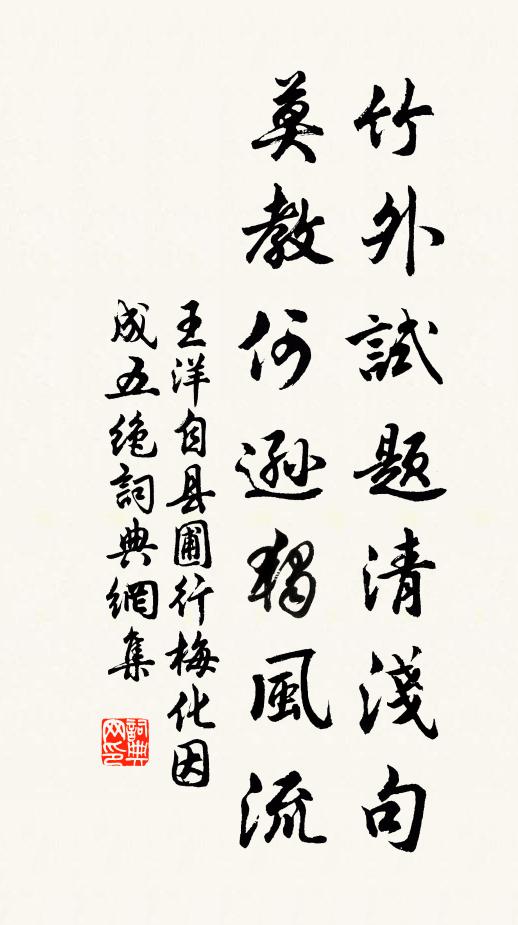 竹外試題清淺句
莫教何遜獨風流
王洋自县圃行梅化因
成五絶詞典網集
詞典网印